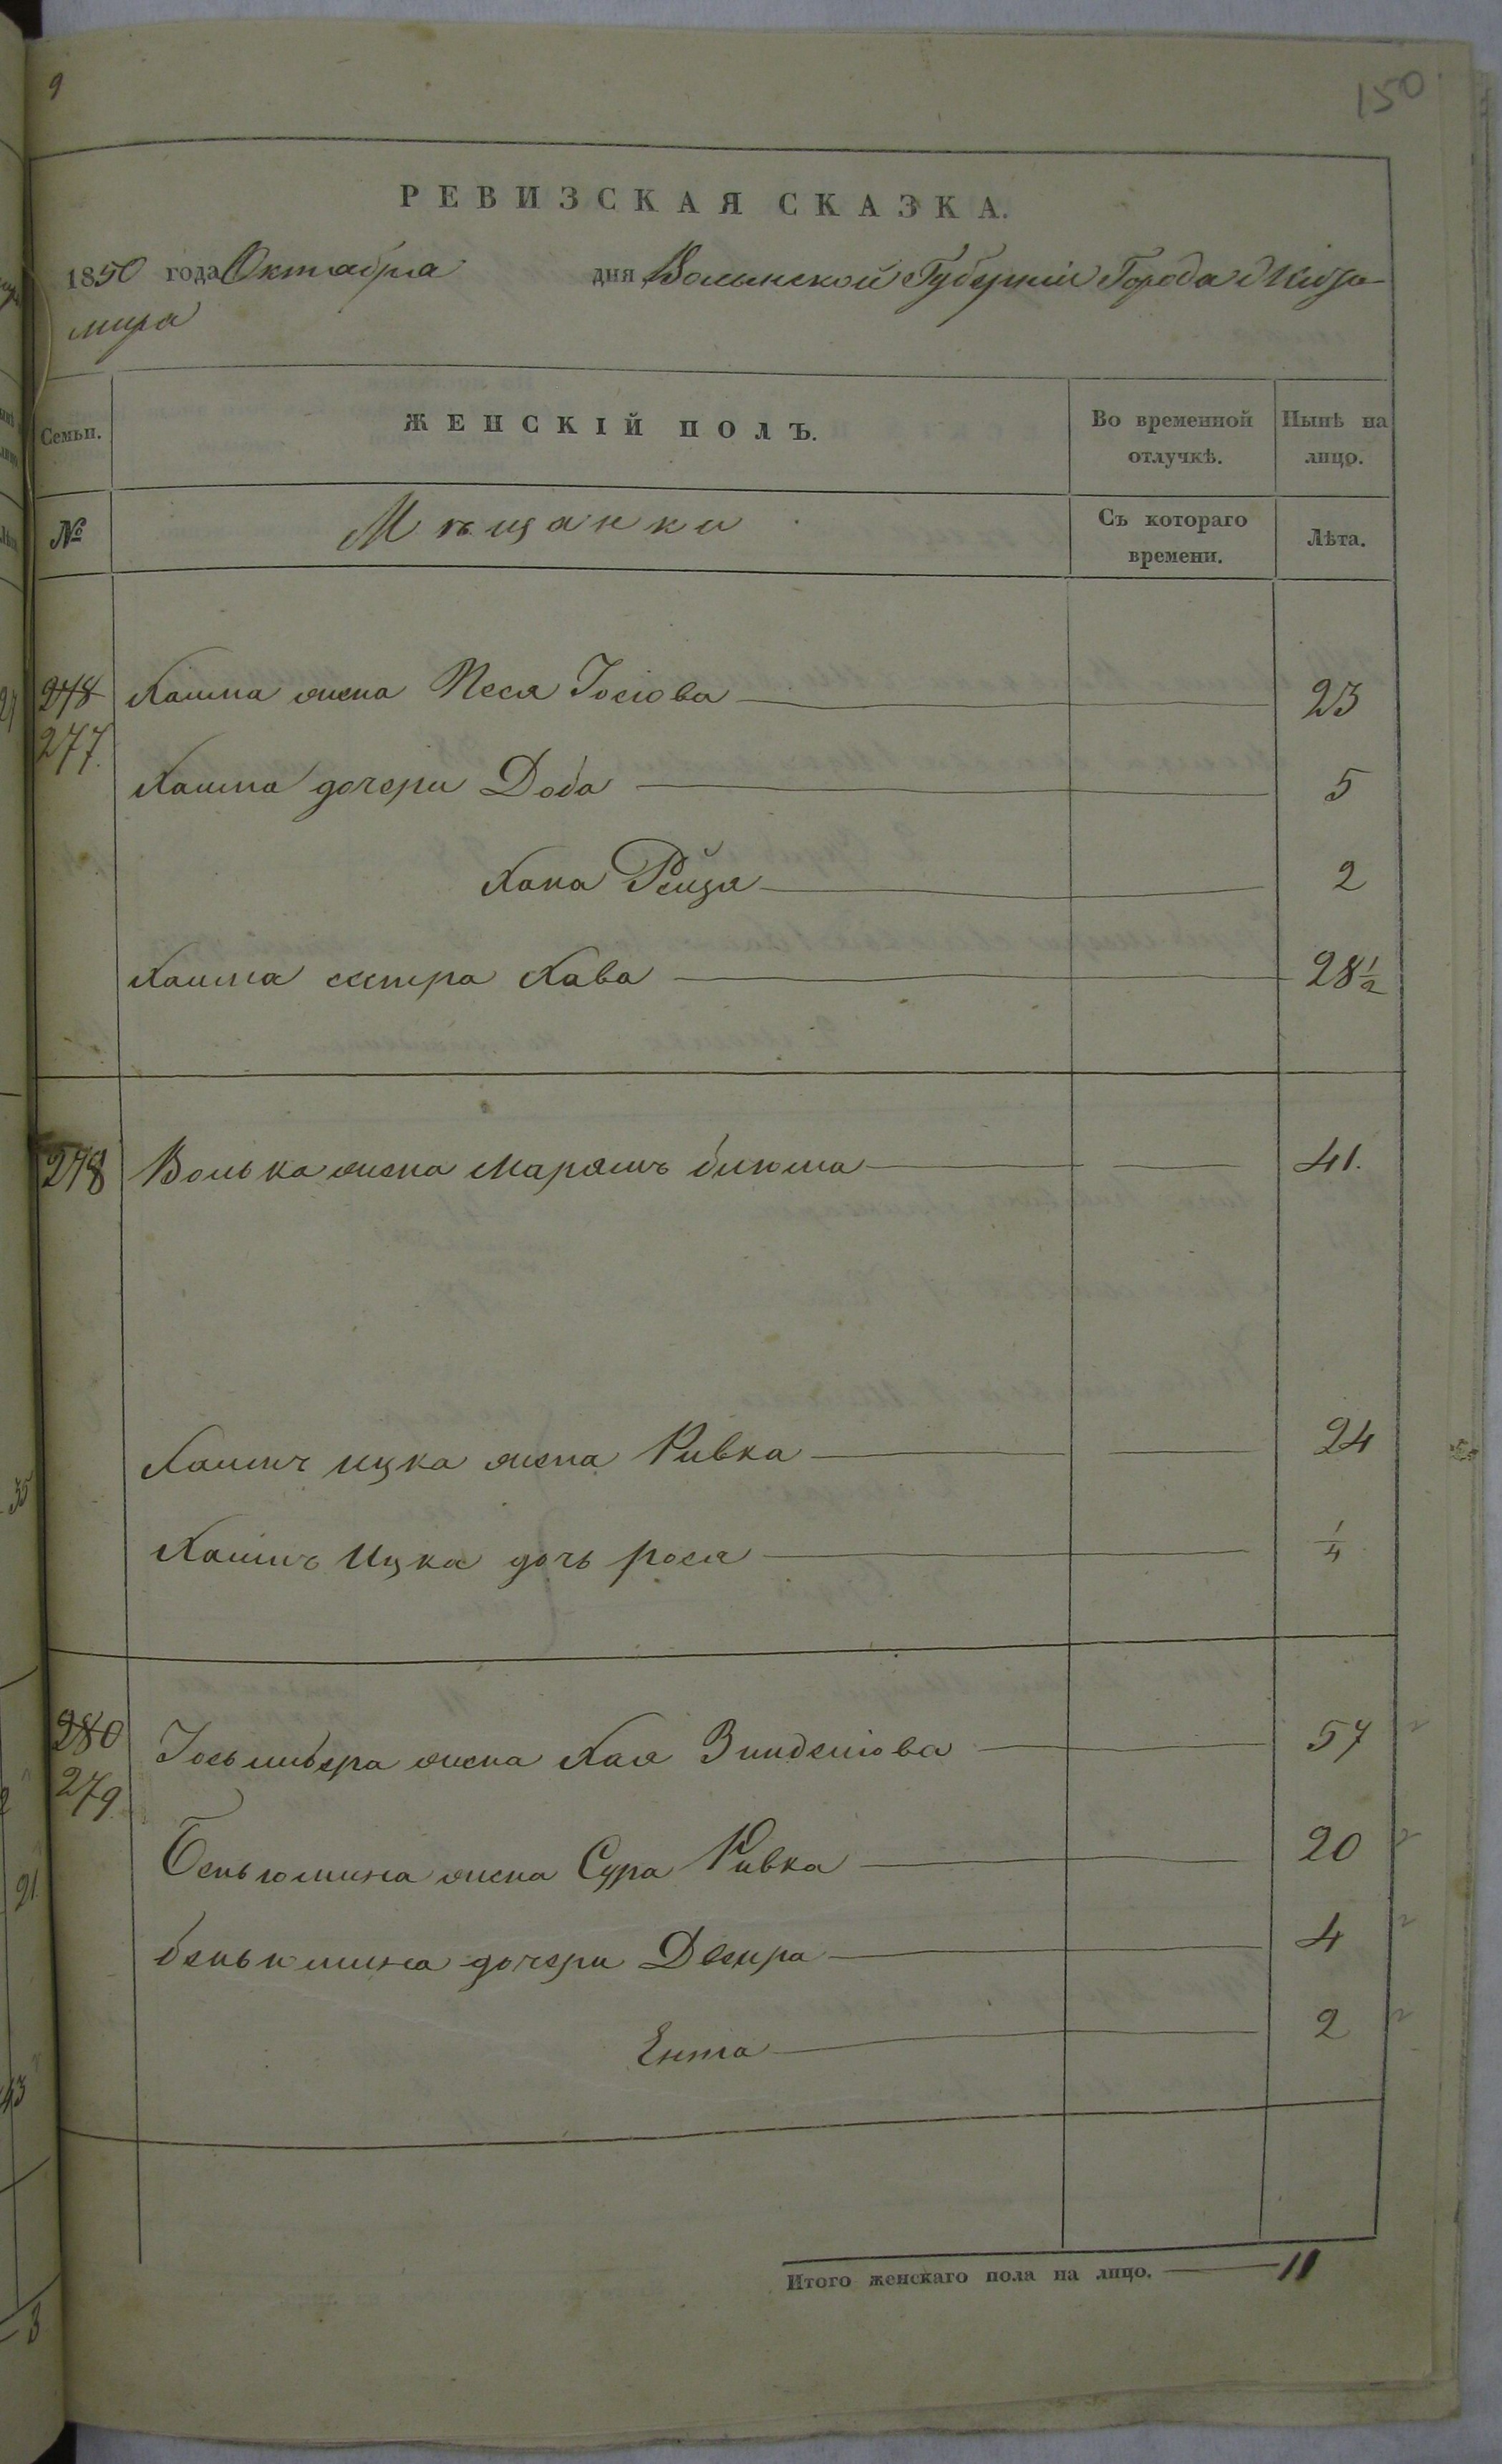 9
150
РЕВИЗСКАЯ СКАЗКА.
1850 года Октября дня Волынской Губерніи Города Жито-
мира
Семьи. ЖЕНСКІЙ ПОЛЪ. Во временной отлучкѣ. Нынѣ на лицо.
№ Мѣщанки Съ котораго времени. Лѣта.
278 Хаима жена Песя Іосіова 23
277.
Хаима дочери Доба 5
Хана Рейзя 2
Хаима сестра Хава 28½
278 Волька жена Марямъ 41.
Хаимъ Ицка жена Ривка 24
Хаимъ Ицка дочь рося ¼
280 жена Хая 57
279.
Беньюмина жена Сура Ривка 20
беньюмина дочери Двейра 4
Ента 2
Итого женскаго пола на лицо. 11